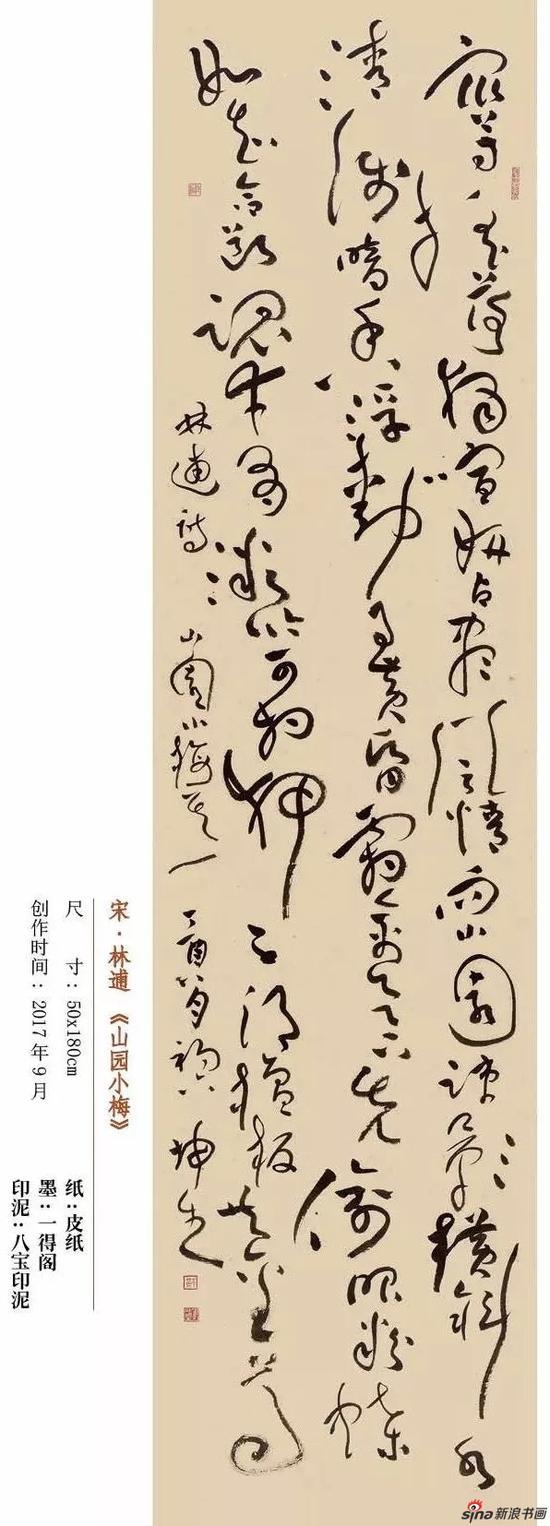 眾芳搖落獨暄妍占盡風情向小園疎影橫斜水
清淺暗香浮動月黃昏霜禽欲下先偷眼粉蝶
如知合斷魂幸有微吟可相狎不須檀板共金尊
林逋詩 山園小梅其一 丁酉
宋·林逋《山园小梅》
尺 寸：50x180cm
创作时间：2017年9月
纸：皮纸
墨：一得阁
印泥：八宝印泥
sina新浪书画